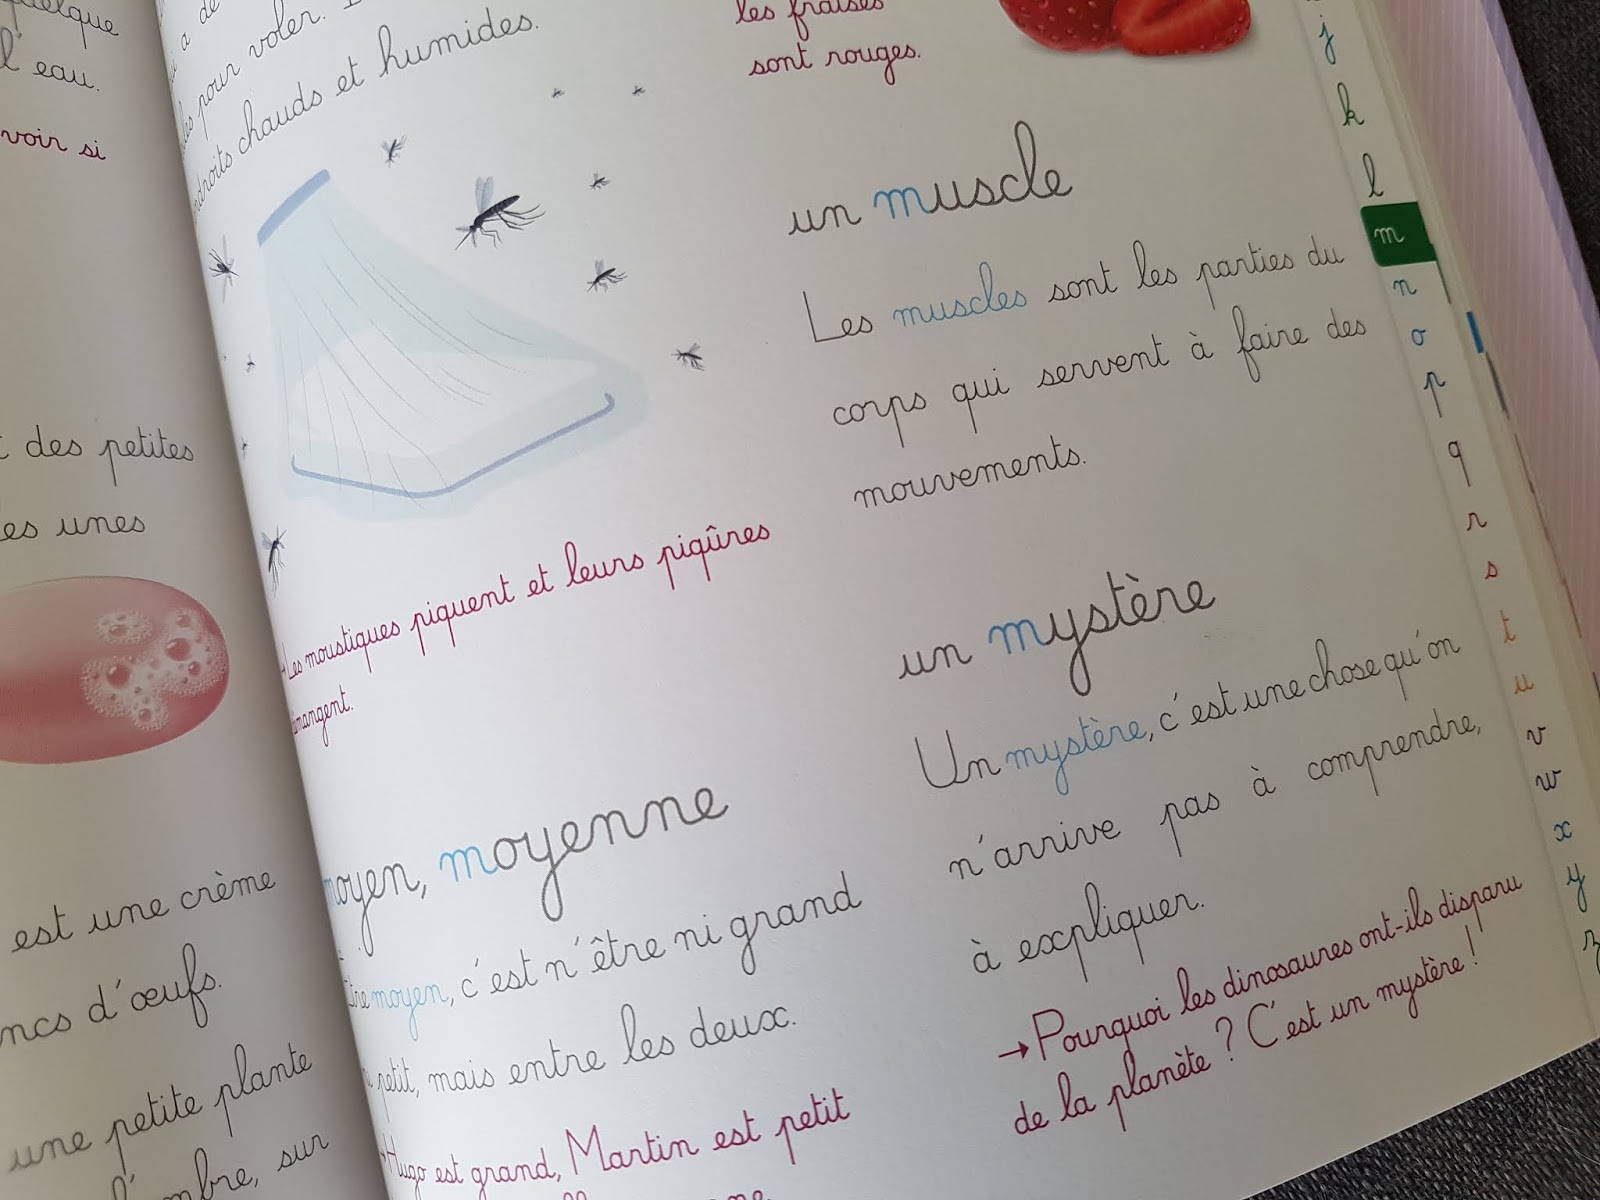 quelque
l'eau.
voir si
des petites
les unes
est une crème
d'œufs.
une petite plante
sur
pour voler.
chauds et humides.
Les moustiques piquent et leurs piqûres
démangent.
moyen, moyenne
Être moyen, c'est n'être ni grand
petit, mais entre les deux.
→ Hugo est grand, Martin est petit
les fraises
sont rouges.
un muscle
Les muscles sont les parties du
corps qui servent à faire des
mouvements.
un mystère
Un mystère, c'est une chose qu'on
n'arrive pas à comprendre,
à expliquer.
→ Pourquoi les dinosaures ont-ils disparu
de la planète ? C'est un mystère !
j
k
l
m
n
o
p
q
r
s
t
u
v
w
x
y
z